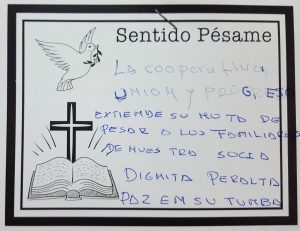 Sentido Pésame
LA COOPERATIVA
UNION Y PROGRESO
EXTIENDE SU NOTA DE
PESAR A LOS FAMILIARES
DE NUESTRA SOCIA
DIGNITA PERALTA
PAZ EN SU TUMBA